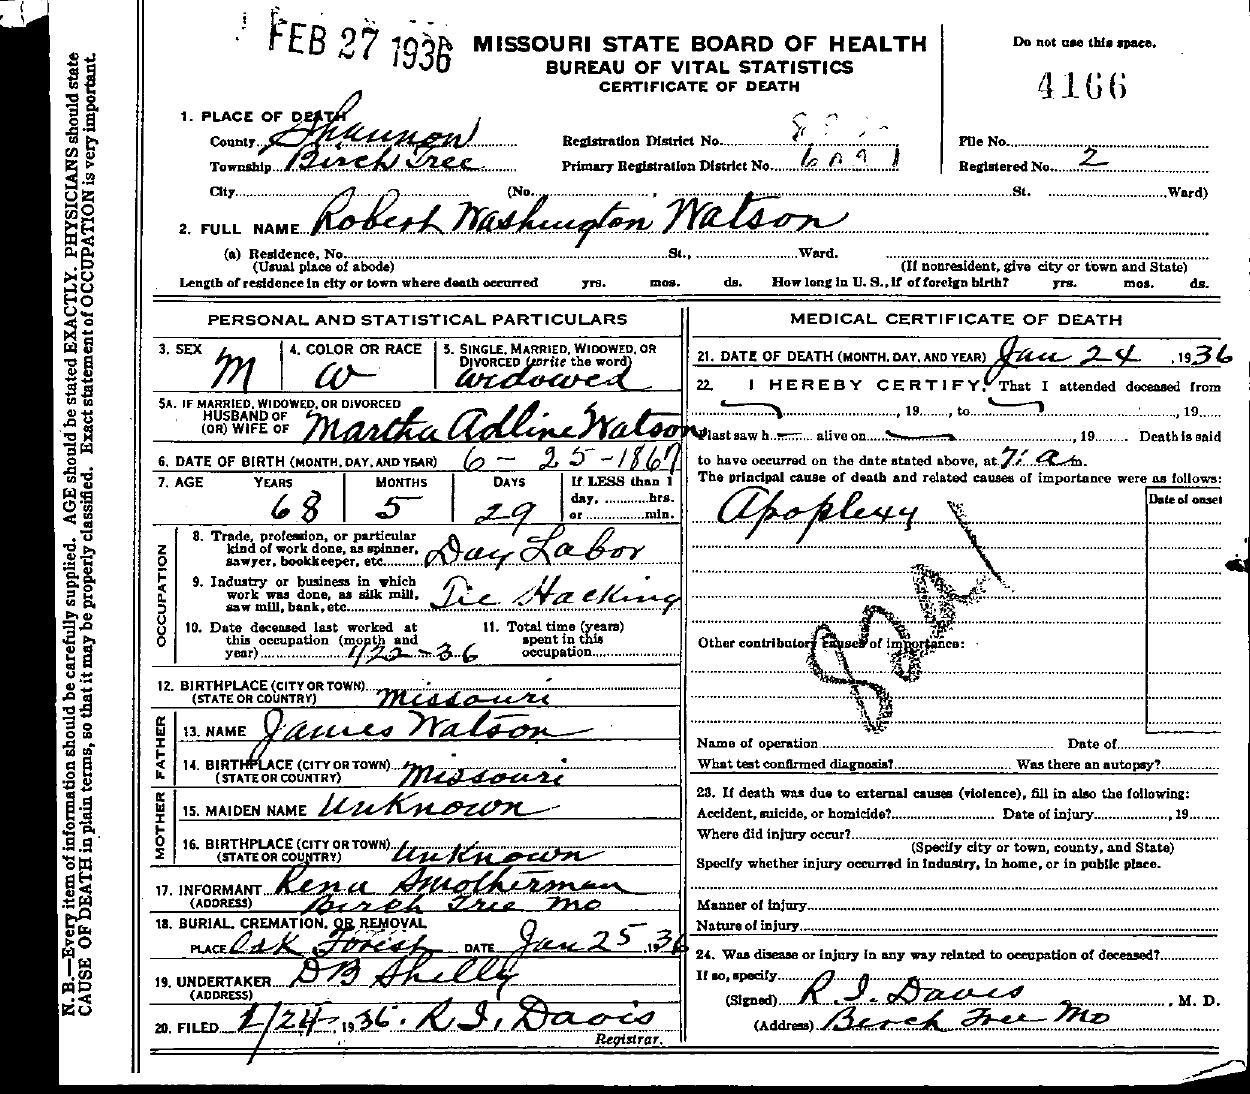 FEB 27 1936
MISSOURI STATE BOARD OF HEALTH
BUREAU OF VITAL STATISTICS
CERTIFICATE OF DEATH
Do not use this space.
4166
1. PLACE OF DEATH
County Shannon Registration District No. File No.
Township Birch Tree Primary Registration District No. 6091 Registered No. 2
City (No. , St. Ward)
2. FULL NAME Robert Washington Watson
(a) Residence, No. St., Ward.
(Usual place of abode) (If nonresident, give city or town and State)
Length of residence in city or town where death occurred yrs. mos. ds. How long in U. S., if of foreign birth? yrs. mos. ds.
PERSONAL AND STATISTICAL PARTICULARS
3. SEX M
4. COLOR OR RACE W
5. SINGLE, MARRIED, WIDOWED, OR
DIVORCED (write the word)
widowed
5A. IF MARRIED, WIDOWED, OR DIVORCED
HUSBAND OF
(OR) WIFE OF Martha Adline Watson
6. DATE OF BIRTH (MONTH, DAY, AND YEAR) 6-25-1867
7. AGE YEARS MONTHS DAYS If LESS than 1
day, hrs.
or min.
68 5 29
OCCUPATION
8. Trade, profession, or particular
kind of work done, as spinner,
sawyer, bookkeeper, etc. Day Labor
9. Industry or business in which
work was done, as silk mill,
saw mill, bank, etc. Tie Hacking
10. Date deceased last worked at
this occupation (month and
year) 1/22-36
11. Total time (years)
spent in this
occupation
12. BIRTHPLACE (CITY OR TOWN)
(STATE OR COUNTRY) Missouri
FATHER
13. NAME James Watson
14. BIRTHPLACE (CITY OR TOWN)
(STATE OR COUNTRY) Missouri
MOTHER
15. MAIDEN NAME Unknown
16. BIRTHPLACE (CITY OR TOWN)
(STATE OR COUNTRY) Unknown
17. INFORMANT Rena Smotherman
(ADDRESS) Birch Tree Mo
18. BURIAL, CREMATION, OR REMOVAL
PLACE Oak Forest DATE Jan 25 1936
19. UNDERTAKER D B Shelly
(ADDRESS)
20. FILED 1/24 1936. R. I. Davis
Registrar.
MEDICAL CERTIFICATE OF DEATH
21. DATE OF DEATH (MONTH, DAY, AND YEAR) Jan 24 , 1936
22. I HEREBY CERTIFY, That I attended deceased from
, 19 , to , 19
I last saw h alive on , 19 Death is said
to have occurred on the date stated above, at 7: a m.
The principal cause of death and related causes of importance were as follows:
Date of onset
Apoplexy
Other contributory causes of importance:
Name of operation Date of
What test confirmed diagnosis? Was there an autopsy?
23. If death was due to external causes (violence), fill in also the following:
Accident, suicide, or homicide? Date of injury , 19
Where did injury occur?
(Specify city or town, county, and State)
Specify whether injury occurred in industry, in home, or in public place.
Manner of injury
Nature of injury
24. Was disease or injury in any way related to occupation of deceased?
If so, specify
(Signed) R. I. Davis , M. D.
(Address) Birch Tree Mo
N. B.—Every item of information should be carefully supplied. AGE should be stated EXACTLY. PHYSICIANS should state
CAUSE OF DEATH in plain terms, so that it may be properly classified. Exact statement of OCCUPATION is very important.